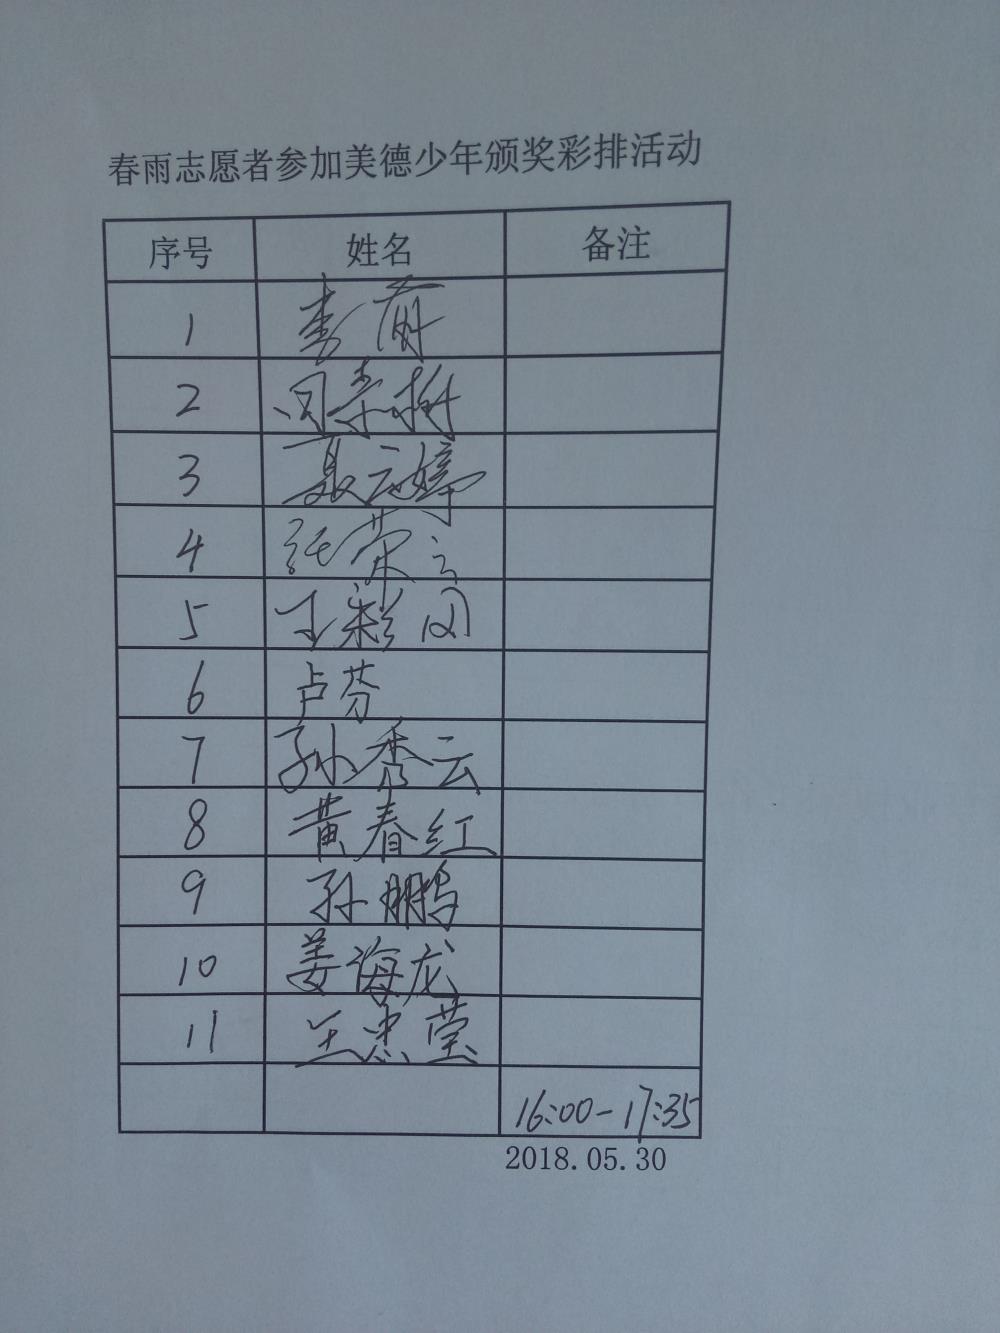 春雨志愿者参加美德少年颁奖彩排活动
序号 姓名 备注
1 李
2
3 聂云婷
4 张荣云
5 王彩
6 卢芬
7 孙秀云
8 黄春红
9 孙鹏
10 姜海龙
11 王忠莹
16:00-17:35
2018.05.30